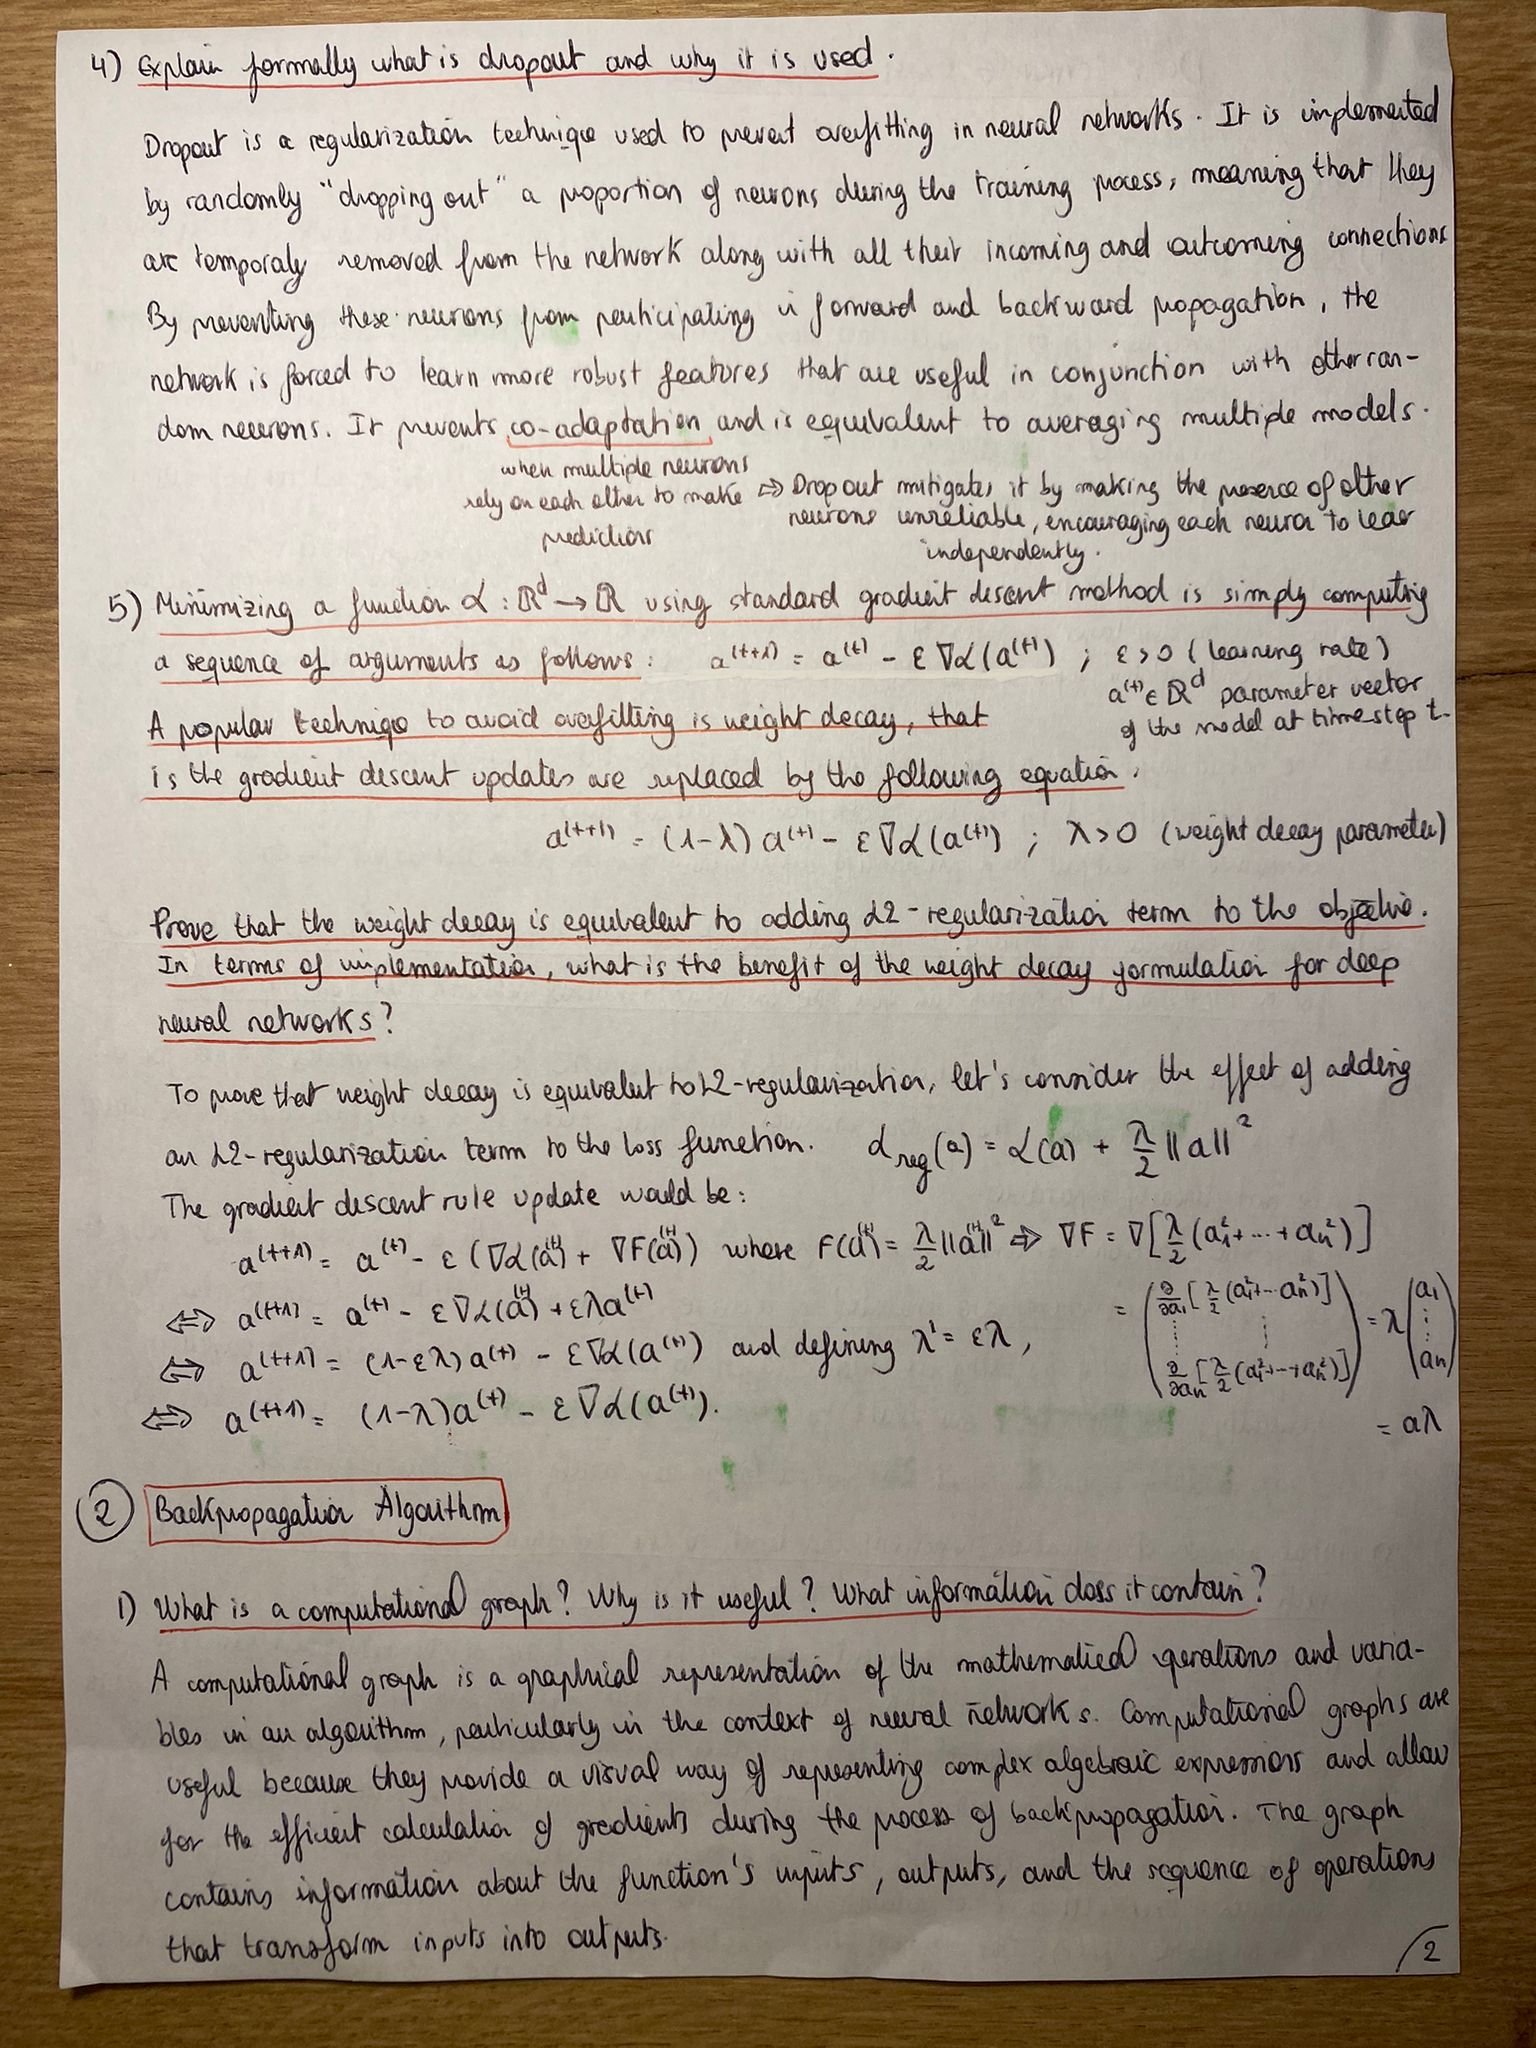 4) Explain formally what is dropout and why it is used.
Dropout is a regularization technique used to prevent overfitting in neural networks. It is implemented
by randomly "dropping out" a proportion of neurons during the training process, meaning that they
are temporaly removed from the network along with all their incoming and outcoming connections
By preventing these neurons from participating in forward and backward propagation, the
network is forced to learn more robust features that are useful in conjunction with other ran-
dom neurons. It prevents co-adaptation and is equivalent to averaging multiple models.
when multiple neurons
rely on each other to make
prediction
⇒ Dropout mitigates it by making the presence of other
neurons unreliable, encouraging each neuron to lear
independently.
5) Minimizing a function L : ℝᵈ → ℝ using standard gradient descent method is simply computing
a sequence of arguments as follows: a⁽ᵗ⁺¹⁾ = a⁽ᵗ⁾ - ε∇L(a⁽ᵗ⁾) ; ε > 0 (learning rate)
a⁽ᵗ⁾ ∈ ℝᵈ parameter vector
of the model at time step t.
A popular technique to avoid overfitting is weight decay, that
is the gradient descent updates are replaced by the following equation.
a⁽ᵗ⁺¹⁾ = (1-λ) a⁽ᵗ⁾ - ε∇L(a⁽ᵗ⁾) ; λ > 0 (weight decay parameter)
Prove that the weight decay is equivalent to adding L2-regularization term to the objective.
In terms of implementation, what is the benefit of the weight decay formulation for deep
neural networks?
To prove that weight decay is equivalent to L2-regularization, let's consider the effect of adding
an L2-regularization term to the loss function. L_reg(a) = L(a) + λ/2 ||a||²
The gradient descent rule update would be:
a⁽ᵗ⁺¹⁾ = a⁽ᵗ⁾ - ε (∇L(a⁽ᵗ⁾) + ∇F(a⁽ᵗ⁾)) where F(a⁽ᵗ⁾) = λ/2 ||a⁽ᵗ⁾||² ⇒ ∇F = ∇[λ/2 (a₁² + ... + aₙ²)]
⇔ a⁽ᵗ⁺¹⁾ = a⁽ᵗ⁾ - ε∇L(a⁽ᵗ⁾) + ελa⁽ᵗ⁾
= (∂/∂a₁ [λ/2 (a₁² + ... aₙ²)] ⋮ ∂/∂aₙ [λ/2 (a₁² + ... + aₙ²)]) = λ (a₁ ⋮ aₙ)
⇔ a⁽ᵗ⁺¹⁾ = (1-ελ) a⁽ᵗ⁾ - ε∇L(a⁽ᵗ⁾) and defining λ' = ελ,
⇔ a⁽ᵗ⁺¹⁾ = (1-λ) a⁽ᵗ⁾ - ε∇L(a⁽ᵗ⁾).
= aλ
2 Backpropagation Algorithm
1) What is a computational graph? Why is it useful? What information does it contain?
A computational graph is a graphical representation of the mathematical operations and varia-
bles in an algorithm, particularly in the context of neural networks. Computational graphs are
useful because they provide a visual way of representing complex algebraic expressions and allow
for the efficient calculation of gradients during the process of backpropagation. The graph
contains information about the function's inputs, outputs, and the sequence of operations
that transform inputs into outputs.
2